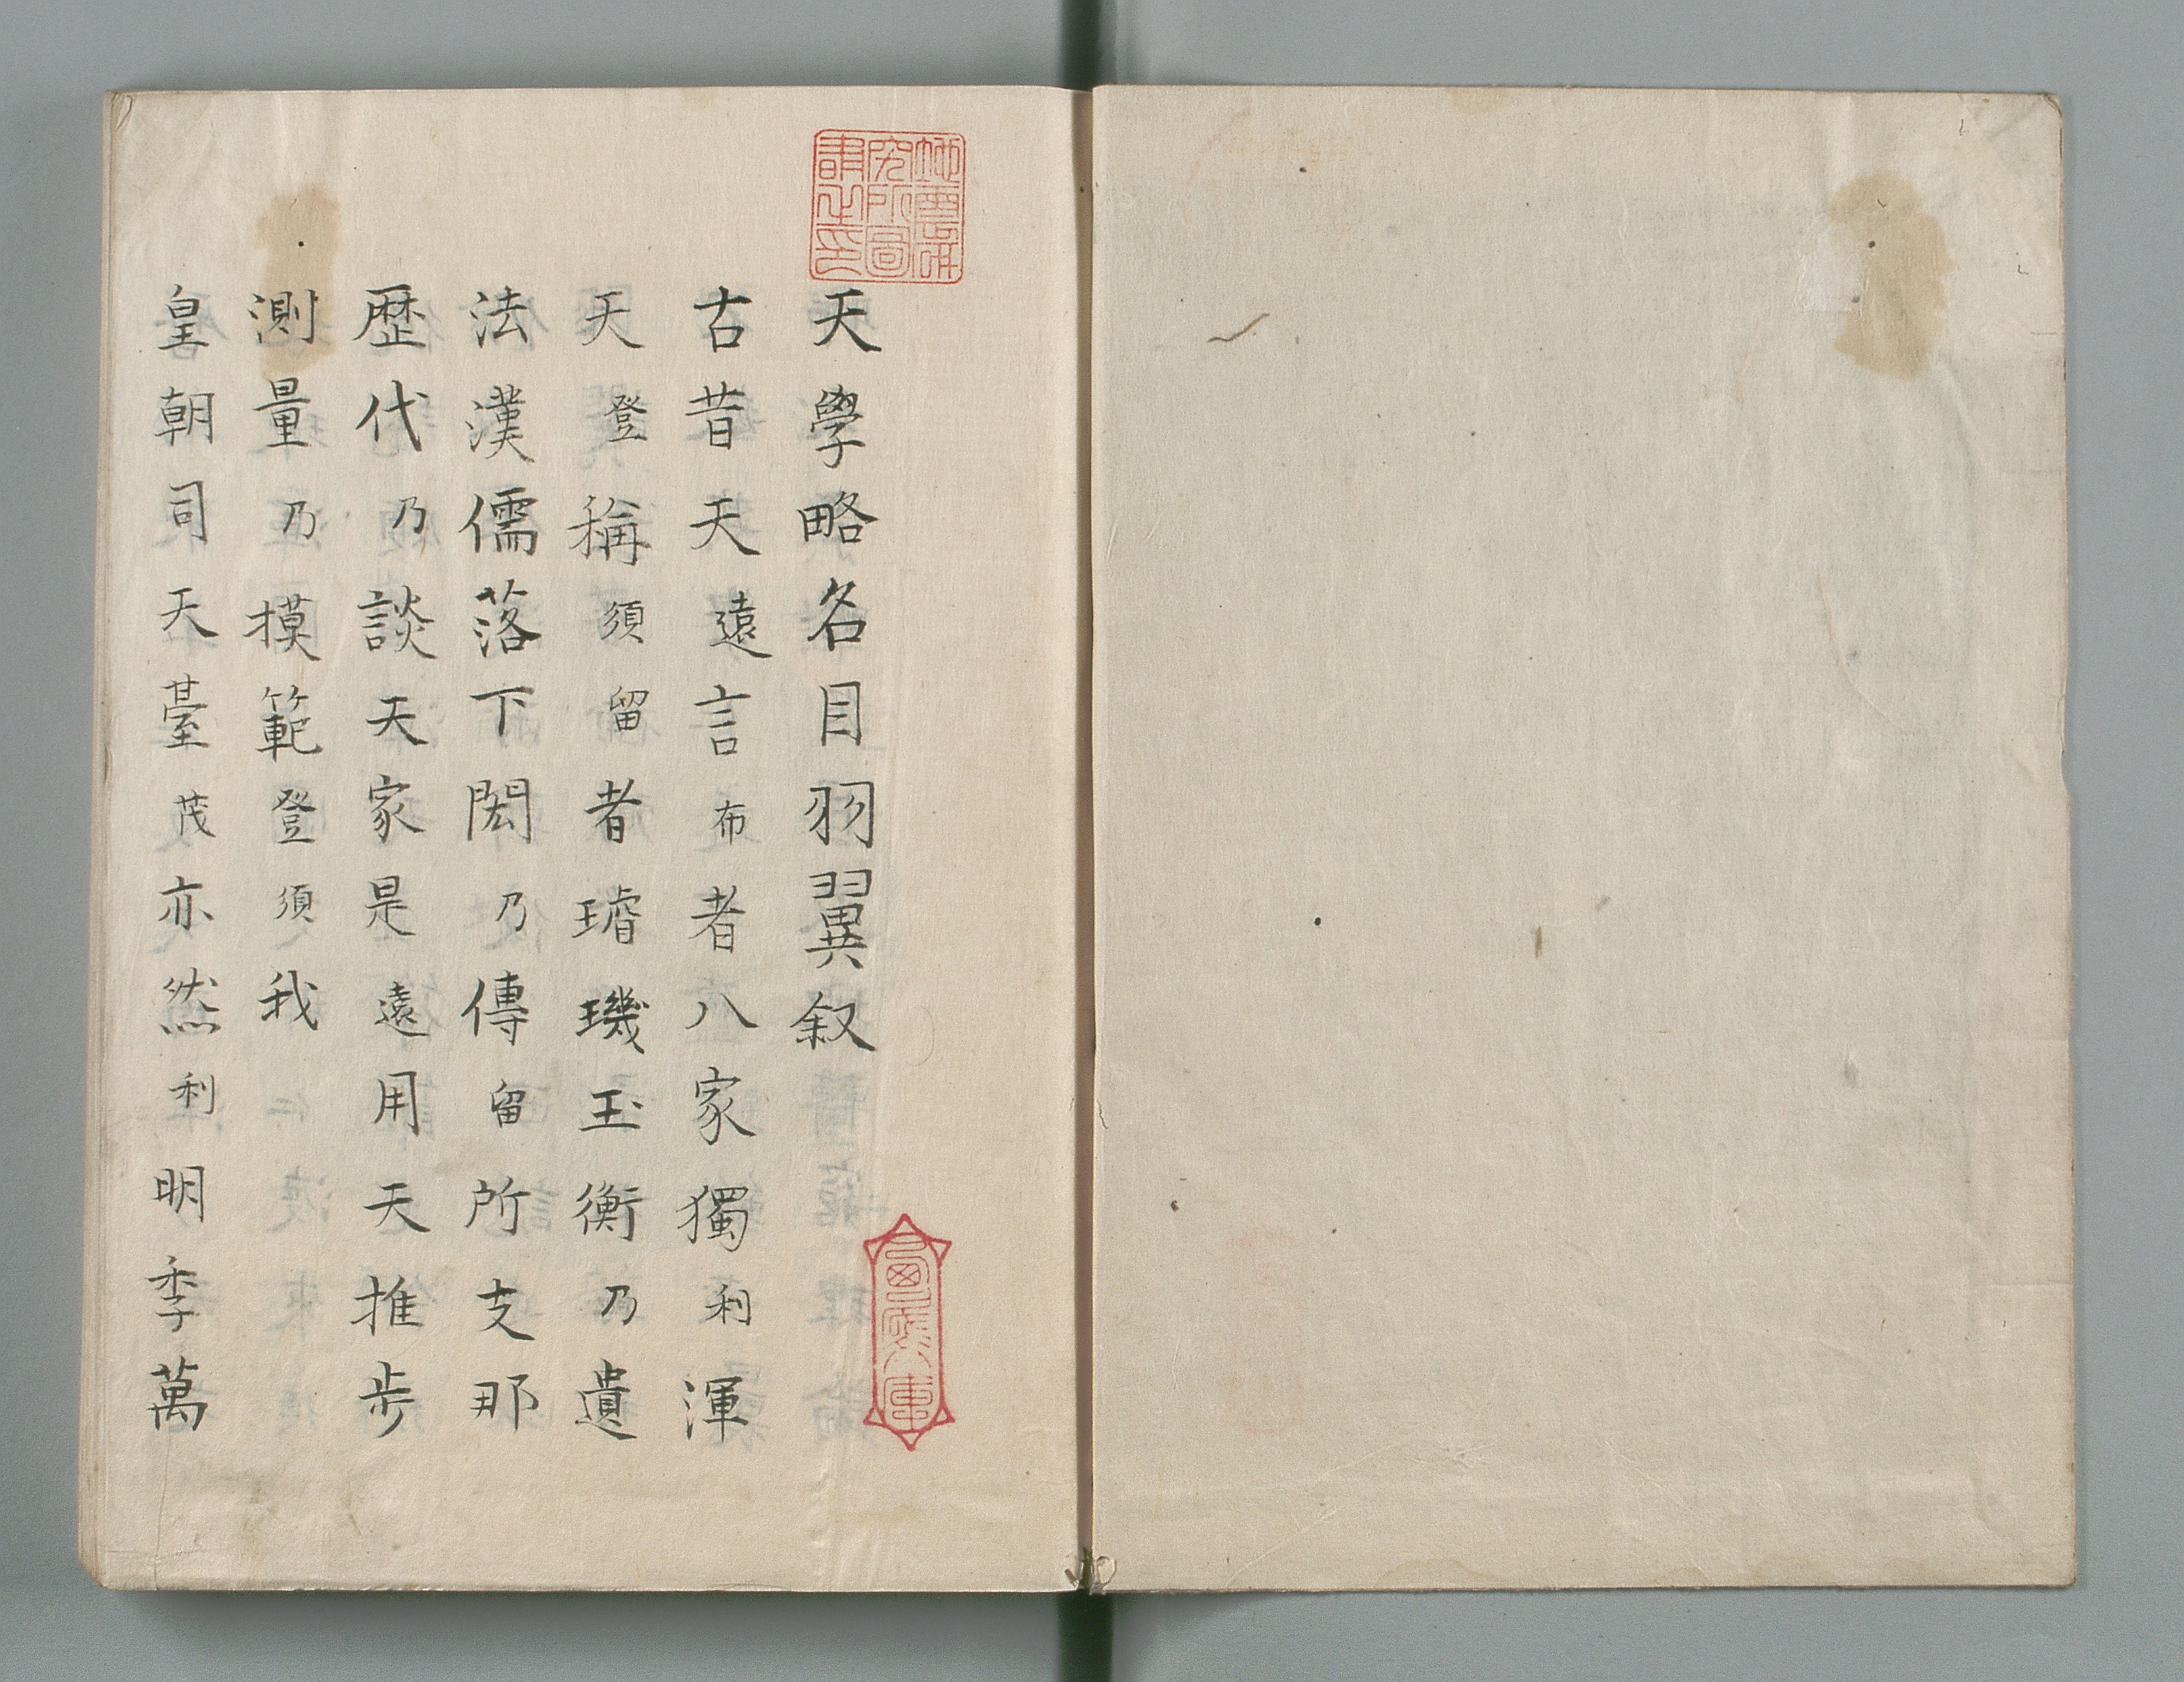 天學略名目羽翼叙
古昔天遠言布者八家獨利渾
天登稱須留者璿璣玉衡乃遺
法漢儒落下閎乃傳留所支那
歴代乃談天家是遠用天推步
測量乃摸範登須我
皇朝司天臺茂亦然利明季萬
地震研
究所圖
書之印